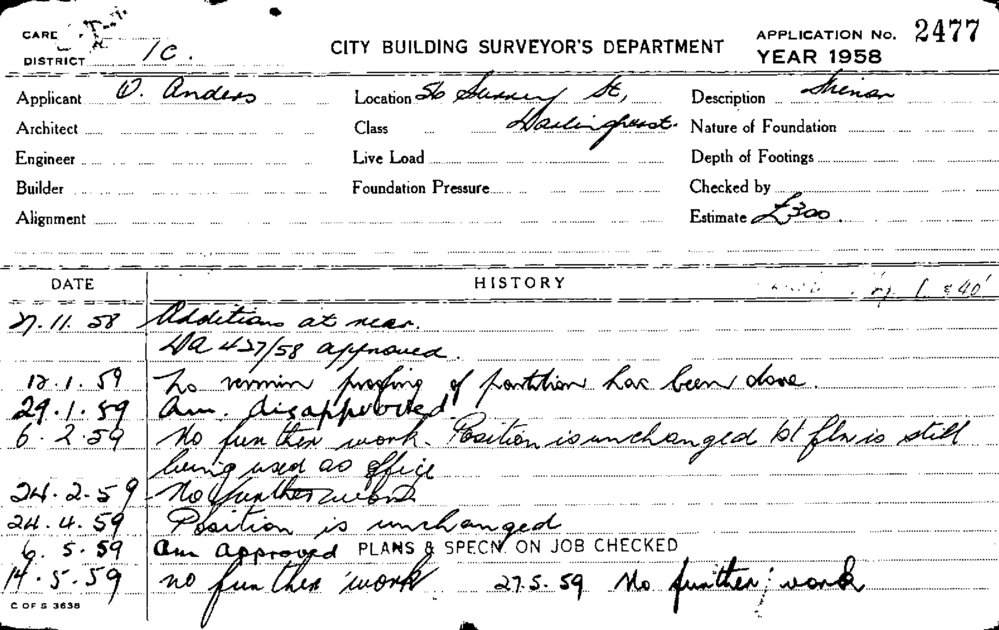 CARD
DISTRICT 1C.
CITY BUILDING SURVEYOR'S DEPARTMENT
APPLICATION No. 2477
YEAR 1958
Applicant O. Anders Location 56 Surrey St, Description
Architect Class Darlinghurst. Nature of Foundation
Engineer Live Load Depth of Footings
Builder Foundation Pressure Checked by
Alignment Estimate £300.
DATE HISTORY
27.11.58 Additions at rear.
DA 427/58 approved.
12.1.59 No vermin proofing of partition has been done.
29.1.59 Am. disapproved.
6.2.59 No further work. Position is unchanged 1st flr is still
being used as office
24.2.59 No further work
24.4.59 Position is unchanged
6.5.59 Am approved PLANS & SPECN. ON JOB CHECKED
14.5.59 no further work 27.5.59 No further work
C OF S 3638